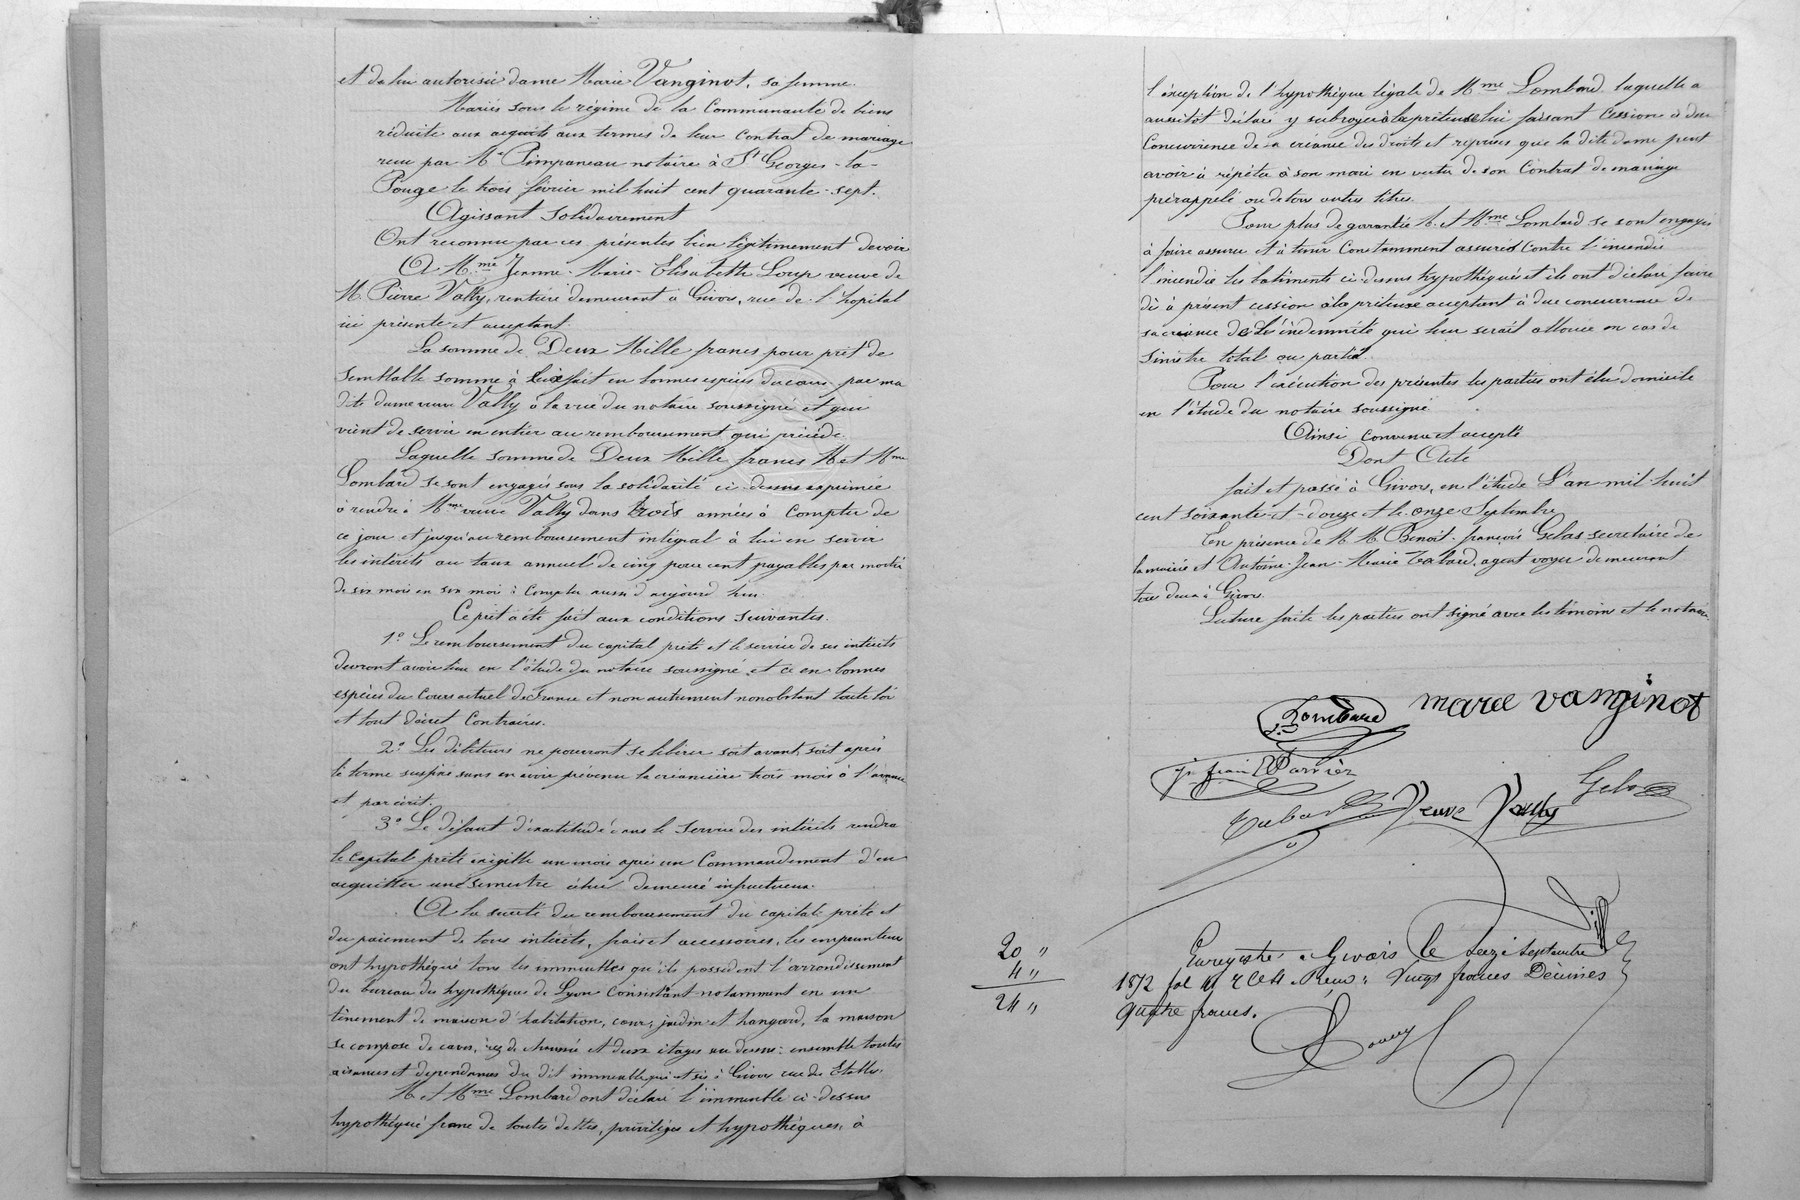 et de lui autorisée dame Marie Vanginot, sa femme.
Mariés sous le régime de la Communauté de biens
réduite aux acquets aux termes de leur contrat de mariage
reçu par Me Pimpaneau notaire à St Georges-la-
Pouge le trois février mil huit cent quarante-sept.
Agissant Solidairement
Ont reconnu par ces présentes bien légitimement devoir
A Mme Jeanne-Marie-Elisabeth Loup veuve de
M. Pierre Vally, rentière demeurant à Givors, rue de l'hopital
ici présente et acceptant.
La somme de Deux Mille francs pour prêt de
semblable somme à eux fait en bonnes espèces du cours par ma
dite dame veuve Vally à la vue du notaire soussigné et qui
vient de servir en entier au remboursement qui précède.
Laquelle somme de Deux Mille francs M et Mme
Lombard se sont engagés sous la solidarité ci-dessus exprimée
à rendre à Mme veuve Vally dans trois années à Compter de
ce jour et jusqu'au remboursement intégral à lui en servir
les intérêts au taux annuel de cinq pour cent payables par moitié
de six mois en six mois à Compter aussi d'aujourd'hui.
Ce prêt a été fait aux conditions suivantes.
1º Le remboursement du capital prêté et le service de ses intérêts
devront avoir lieu en l'étude du notaire soussigné et ce en bonnes
espèces du Cours actuel de France et non autrement nonobstant toute loi
et tout décret Contraires.
2º Les débiteurs ne pourront se libérer soit avant, soit après
le terme susfixé sans en avoir prévenu la créancière trois mois à l'avance
et par écrit.
3º Le défaut d'exactitude dans le Service des intérêts rendra
le Capital prêté exigible un mois après un Commandement d'en
acquitter un semestre échu demeuré infructueux.
A la sureté du remboursement du capital prêté et
du paiement de tous intérêts, frais et accessoires, les emprunteurs
ont hypothéqué tous les immeubles qu'ils possèdent l'arrondissement
du bureau des hypothèques de Lyon Consistant notamment en un
tènement de maison d'habitation, cour, jardin et hangard, la maison
se compose de caves, rez de chaussée et deux étages au dessus: ensemble toutes
aisances et dépendances du dit immeuble qui est sis à Givors rue de
M et Mme Lombard ont déclaré l'immeuble ci-dessus
hypothéqué franc de toutes dettes, privilèges et hypothèques à
l'exception de l'hypothèque légale de Mme Lombard laquelle a
aussitôt déclaré y subroger la prêteuse lui faisant Cession à due
Concurrence de sa créance des droits et reprises que la dite dame peut
avoir à répéter à son mari en vertu de son Contrat de mariage
prérappelé ou de tous autres titres.
Pour plus de garantie M. et Mme Lombard se sont engagés
à faire assurer et à tenir Constamment assurés Contre l'incendie
l'incendie les bâtiments ci-dessus hypothéqués et ils ont déclaré faire
dès à présent cession à la prêteuse acceptant à due concurrence de
sa créance de l'indemnité qui leur serait allouée en cas de
Sinistre total ou partiel.
Pour l'exécution des présentes les parties ont élu domicile
en l'étude du notaire soussigné.
Ainsi convenu et accepté
Dont Acte
fait et passé à Givors, en l'étude L'an mil-huit
cent soixante-et-douze et le onze Septembre
En présence de M.M. Benoit-françois Gelas secrétaire de
la mairie et Antoine-Jean-Marie Tabard, agent voyer demeurant
tous deux à Givors.
Lecture faite les parties ont signé avec les témoins et le notaire.
Lombard Marie Vanginot
Tabard Veuve Vally Gelas
20 "
4 "
24 "
Enregistré à Givors le seize septembre
1872 fol Reçu: Vingt francs Décimes
quatre francs.